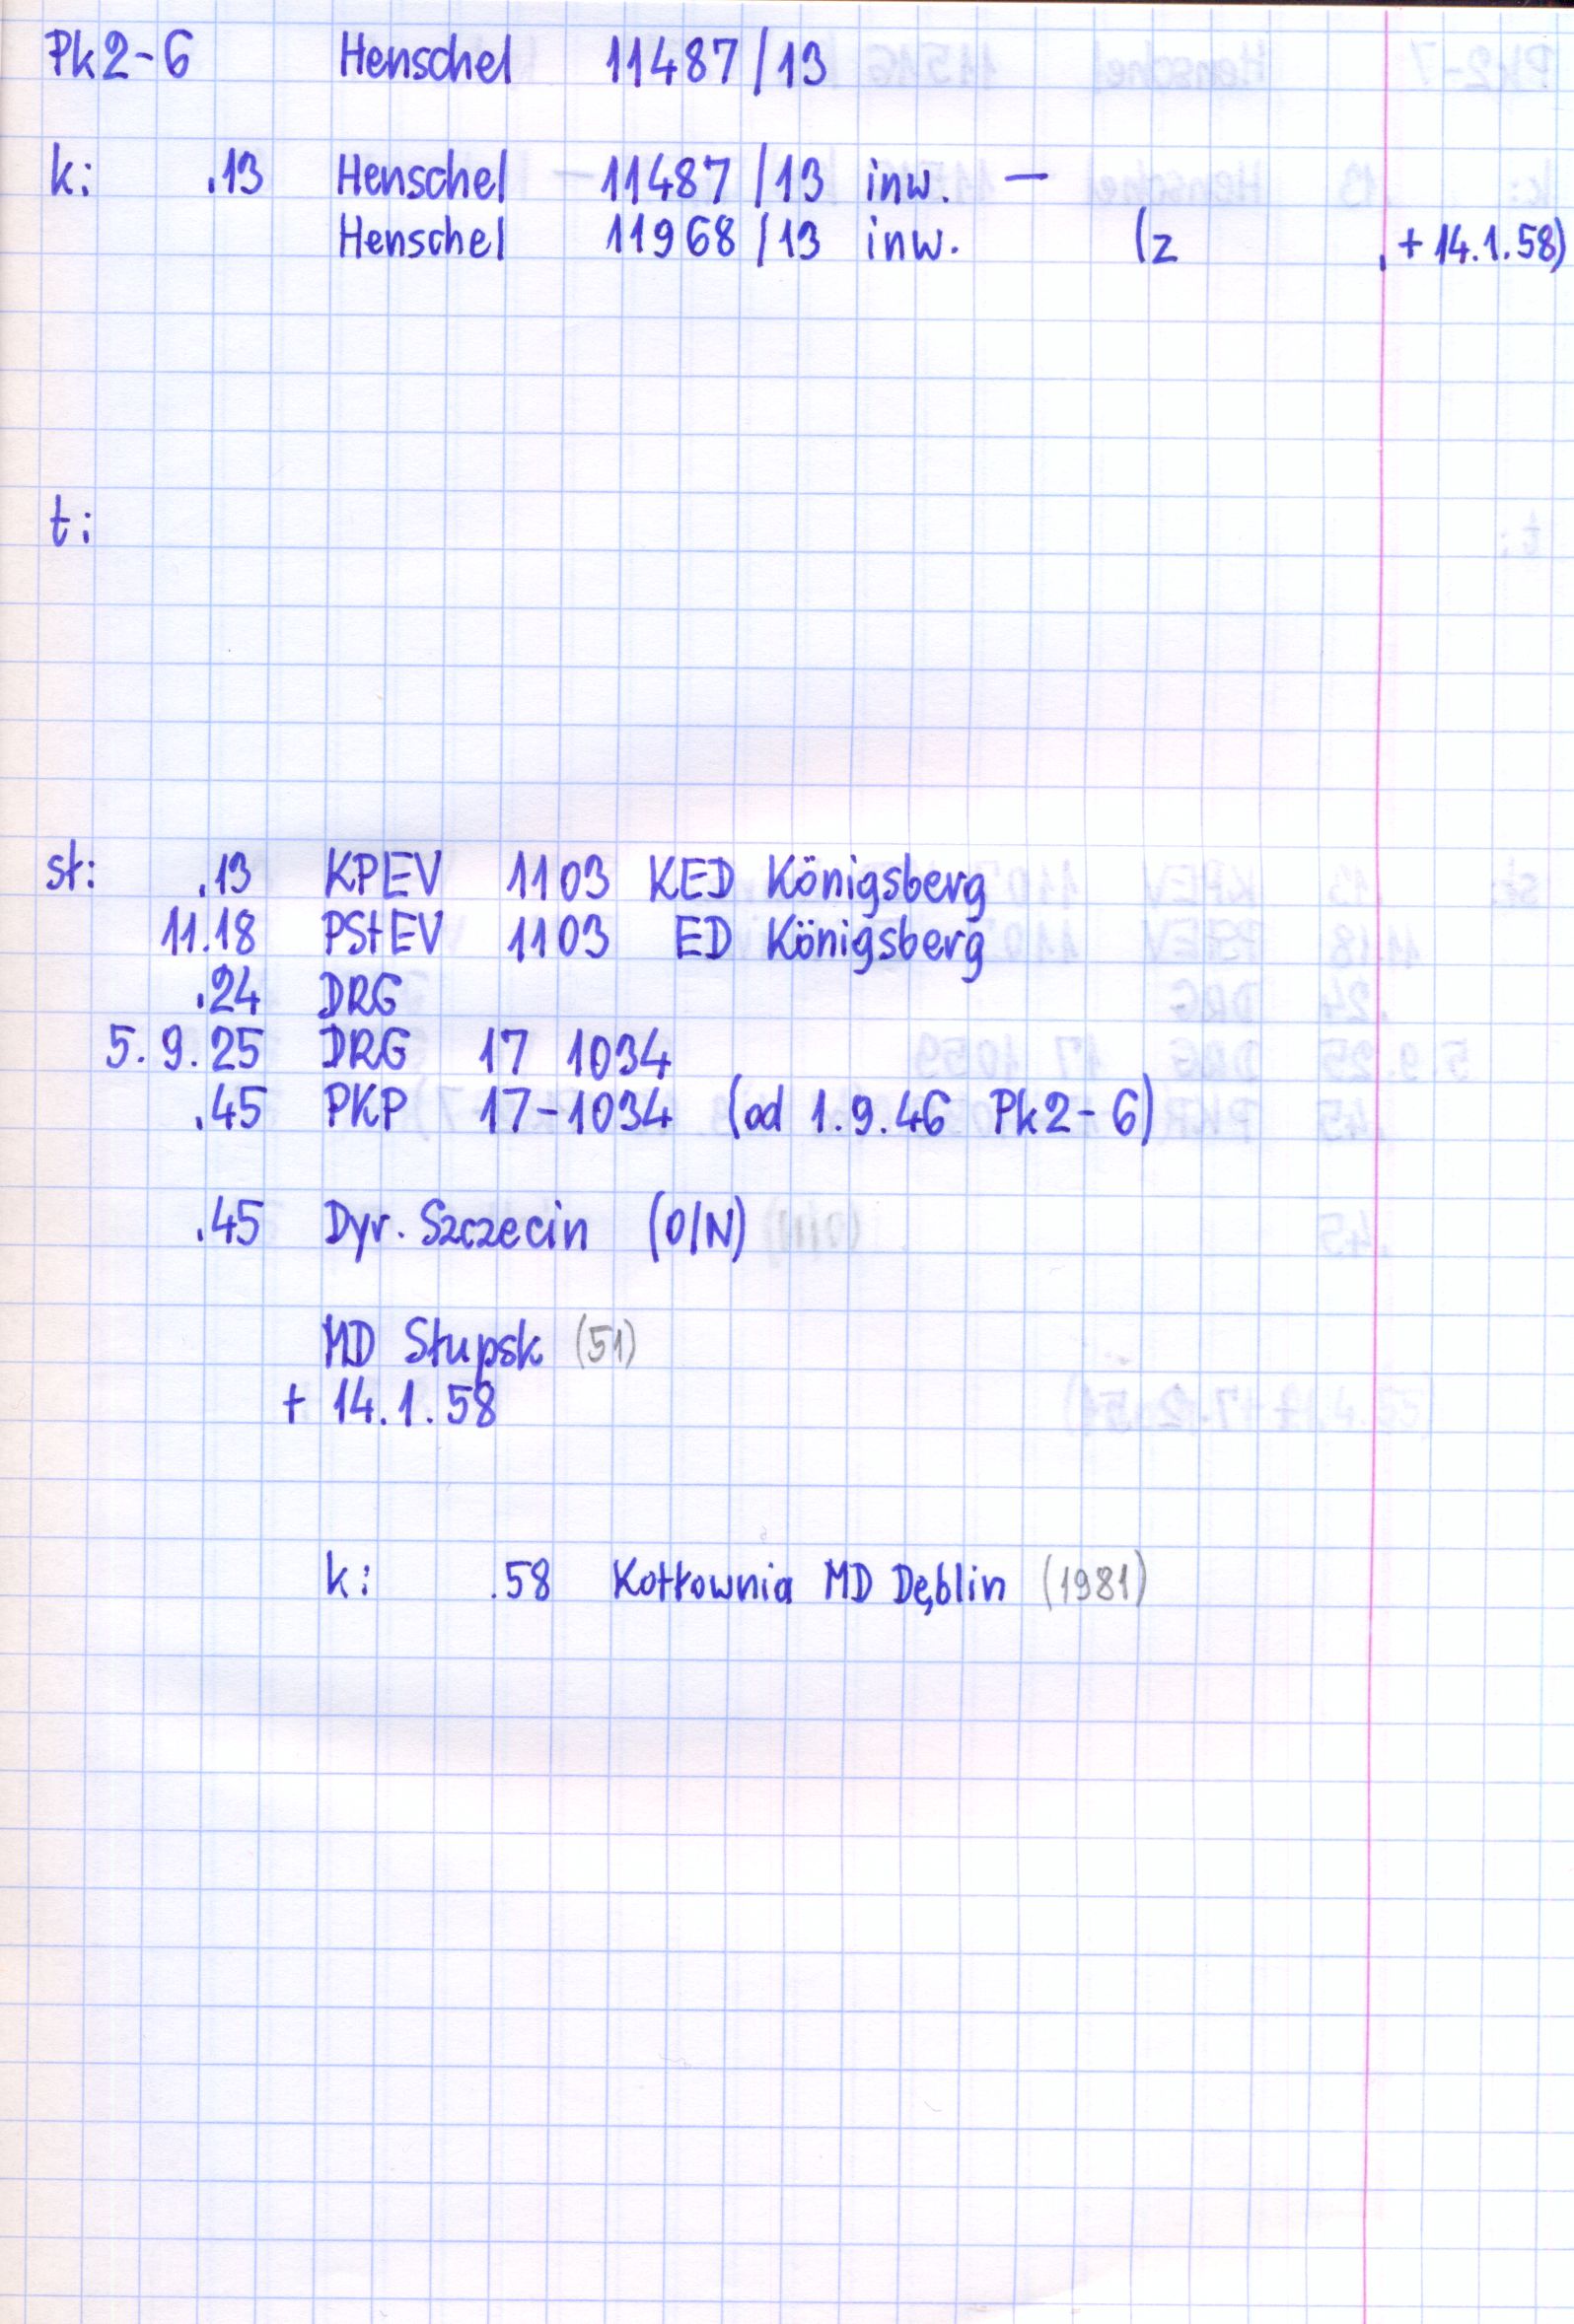 Pk2-6 Henschel 11487/13
k: .13 Henschel 11487/13 inw. —
Henschel 11968/13 inw. (z , + 14.1.58)
t:
st: .13 KPEV 1103 KED Königsberg
11.18 PStEV 1103 ED Königsberg
.24 DRG
5.9.25 DRG 17 1034
.45 PKP 17-1034 (od 1.9.46 Pk2-6)
.45 Dyr. Szczecin (O/N)
MD Słupsk (51)
+ 14.1.58
k: .58 Kotłownia MD Dęblin (1981)